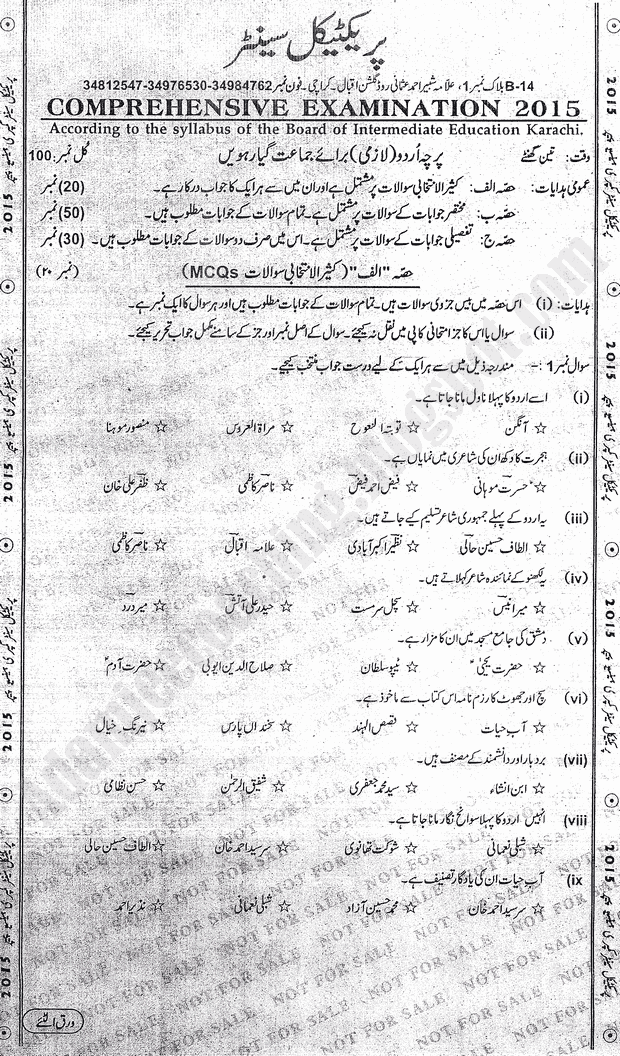 پریکٹیکل سینٹر
B-14 بلاک نمبر 1، علامہ شبیر احمد عثمانی روڈ گلشن اقبال۔ کراچی۔ فون نمبر 34812547-34976530-34984762
COMPREHENSIVE EXAMINATION 2015
According to the syllabus of the Board of Intermediate Education Karachi.
وقت: تین گھنٹے پرچہ اُردو (لازمی) برائے جماعت گیارہویں کل نمبر: 100
عمومی ہدایات: حصّہ الف: کثیر الانتخابی سوالات پر مشتمل ہے اور ان میں سے ہر ایک کا جواب درکار ہے۔ (20) نمبر
حصّہ ب: مختصر جوابات کے سوالات پر مشتمل ہے۔ تمام سوالات کے جوابات مطلوب ہیں۔ (50) نمبر
حصّہ ج: تفصیلی جوابات کے سوالات پر مشتمل ہے۔ اس میں صرف دو سوالات کے جوابات مطلوب ہیں۔ (30) نمبر
حصّہ "الف" (کثیر الانتخابی سوالات MCQs) (نمبر ۲۰)
ہدایات: (i) اس حصّہ میں بیس جزوی سوالات ہیں۔ تمام سوالات کے جوابات مطلوب ہیں اور ہر سوال کا ایک نمبر ہے۔
(ii) سوال یا اس کا جز امتحانی کاپی میں نقل نہ کیجئے۔ سوال کے اصل نمبر اور جز کے سامنے مکمل جواب تحریر کیجئے۔
سوال نمبر 1 :- مندرجہ ذیل میں سے ہر ایک کے لیے درست جواب منتخب کیجیے۔
(i) اسے اردو کا پہلا ناول مانا جاتا ہے۔
☆ آنگن ☆ توبتہ النصوح ☆ مراۃ العروس ☆ منصور موہنا
(ii) ہجرت کا دکھ ان کی شاعری میں نمایاں ہے۔
☆ حسرت موہانی ☆ فیض احمد فیض ☆ ناصر کاظمی ☆ ظفر علی خان
(iii) یہ اردو کے پہلے جمہوری شاعر تسلیم کیے جاتے ہیں۔
☆ الطاف حسین حالی ☆ نظیر اکبر آبادی ☆ علامہ اقبال ☆ ناصر کاظمی
(iv) یہ لکھنو کے نمائندہ شاعر کہلاتے ہیں۔
☆ میر انیس ☆ سچل سرمست ☆ حیدر علی آتش ☆ میر درد
(v) دمشق کی جامع مسجد میں ان کا مزار ہے۔
☆ حضرت یحیٰی ☆ ٹیپو سلطان ☆ صلاح الدین ایوبی ☆ حضرت آدم
(vi) سچ اور جھوٹ کا رزم نامہ اس کتاب سے ماخوذ ہے۔
☆ آب حیات ☆ قصص الہند ☆ سخندان پارس ☆ نیرنگ خیال
(vii) بردبار اور دانشمند کے مصنف ہیں۔
☆ ابن انشاء ☆ سید محمد جعفری ☆ شفیق الرحمٰن ☆ حسن نظامی
(viii) انہیں اردو کا پہلا سوانح نگار مانا جاتا ہے۔
☆ شبلی نعمانی ☆ شوکت تھانوی ☆ سرسید احمد خان ☆ الطاف حسین حالی
ix) آب حیات ان کی یادگار تصنیف ہے۔
☆ سرسید احمد خان ☆ محمد حسین آزاد ☆ شبلی نعمانی ☆ نذیر احمد
ورق الٹیے